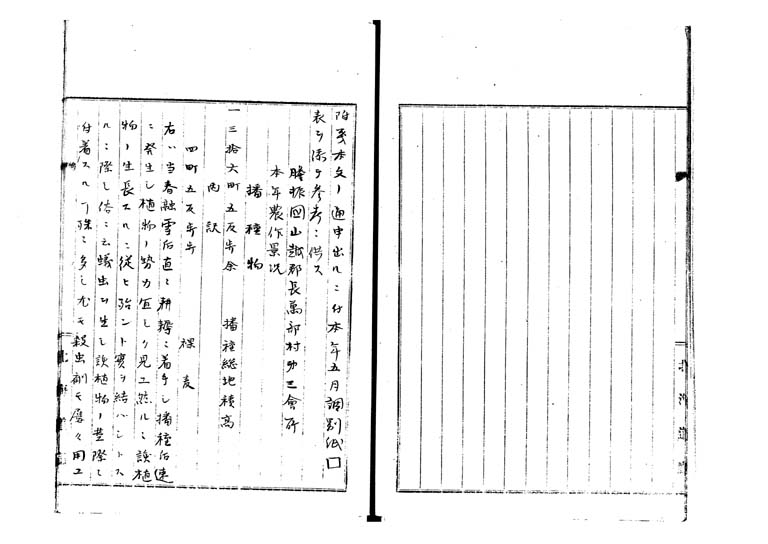 附箋本文ノ通申出候ニ付本年五月調別紙
表ヲ添ヘ参考ニ供ス
膽振國山越郡長萬部村
本年農作景况
播種物
一三拾六町五反歩余　播種総地積高
内訳
四町五反歩　裸麦
右ハ当春融雪后直ニ耕耨ニ着手シ播種后速
ニ発生シ植物ノ勢力宜シク見エ然ルニ該植
物ノ生長スルニ従ヒ殆ント實ヲ結バントス
ルニ際シ俗ニ云蟻虫ヲ生シ該植物ノ
付着スル殊ニ多シ尤モ殺虫剤モ屡々用エ